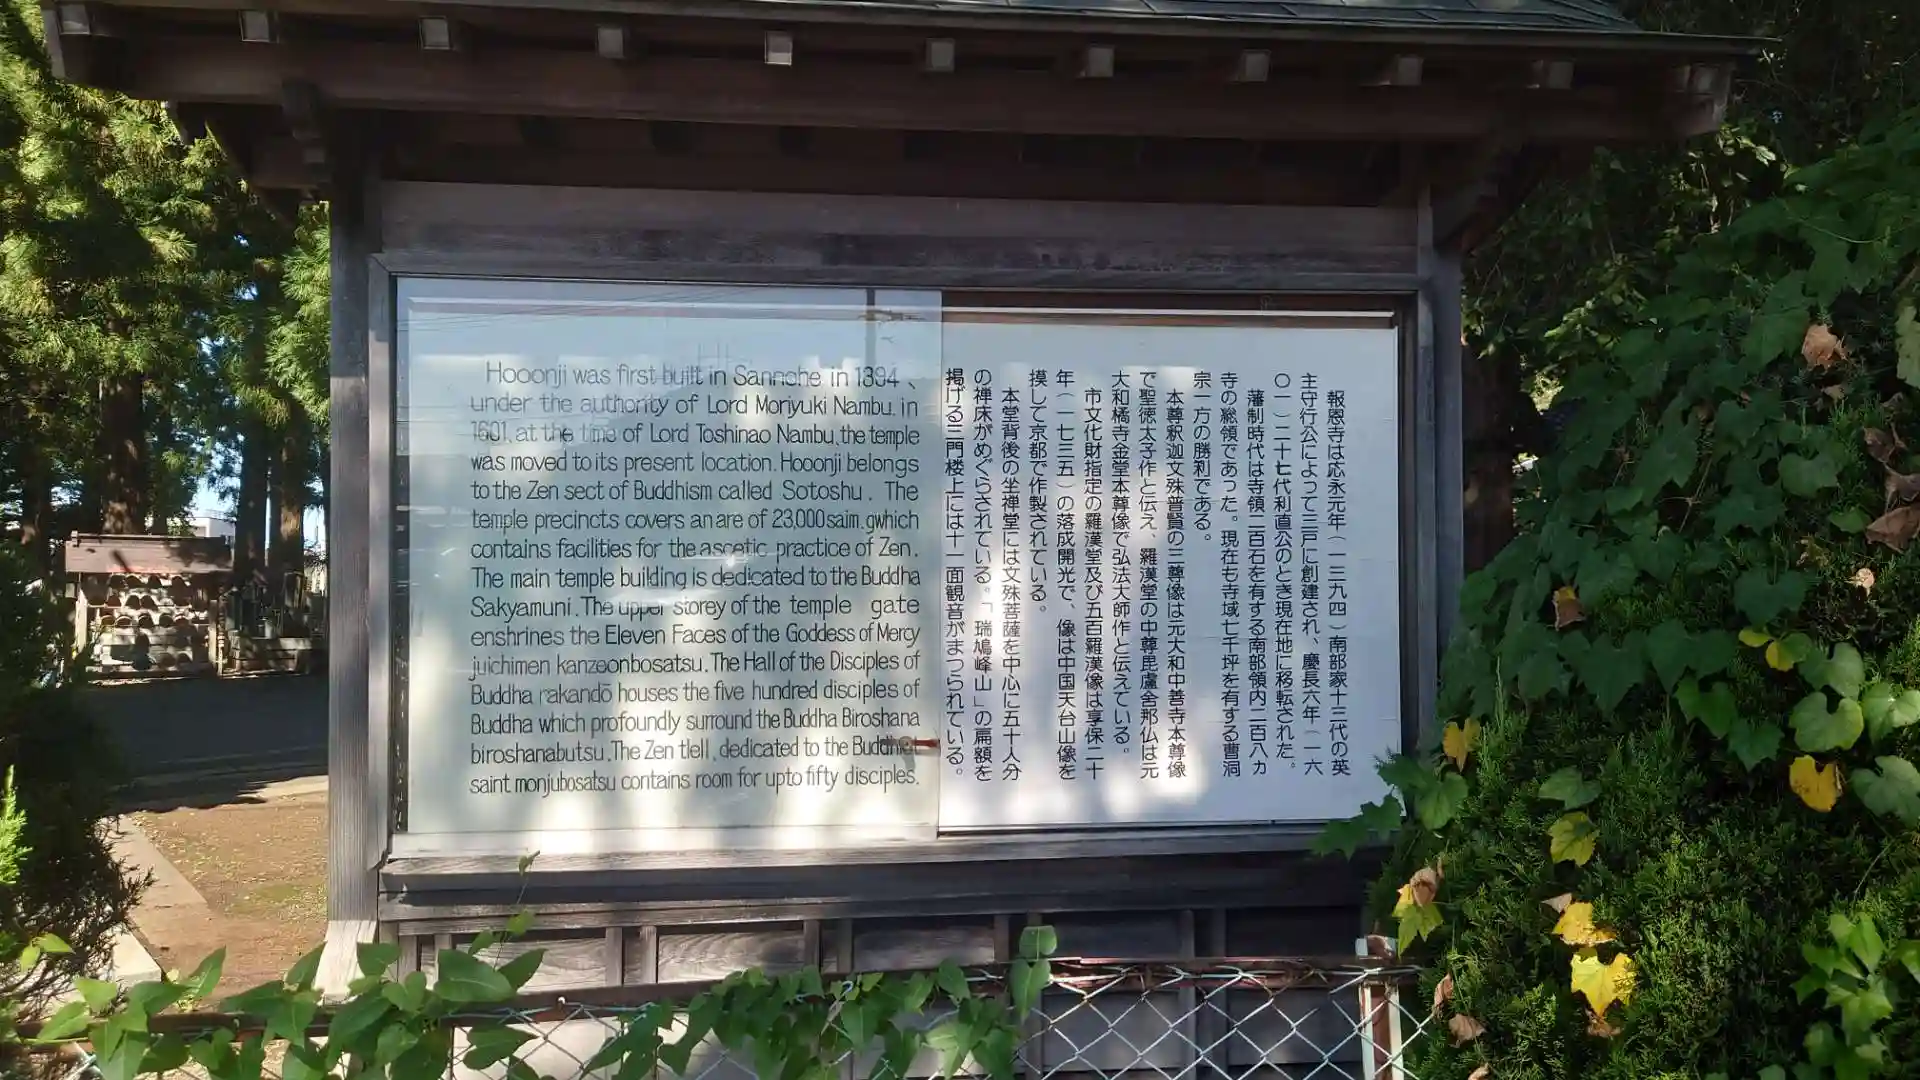 Hooonji was first built in Sannohe in 1394、
under the authority of Lord Moriyuki Nambu. in
1601, at the time of Lord Toshinao Nambu, the temple
was moved to its present location. Hooonji belongs
to the Zen sect of Buddhism called Sotoshu. The
temple precincts covers an are of 23,000 saim. gwhich
contains facilities for the ascetic practice of Zen.
The main temple building is dedicated to the Buddha
Sakyamuni. The upper storey of the temple gate
enshrines the Eleven Faces of the Goddess of Mercy
juichimen kanzeonbosatsu. The Hall of the Disciples of
Buddha rakandō houses the five hundred disciples of
Buddha which profoundly surround the Buddha Biroshana
biroshanabutsu. The Zen tlell, dedicated to the Buddhiat
saint monjubosatsu contains room for upto fifty disciples.
報恩寺は応永元年（一三九四）南部家十三代の英
主守行公によって三戸に創建され、慶長六年（一六
〇一）二十七代利直公のとき現在地に移転された。
藩制時代は寺領二百石を有する南部領内二百八ヵ
寺の総領であった。現在も寺域七千坪を有する曹洞
宗一方の勝刹である。
本尊釈迦文殊普賢の三尊像は元大和中善寺本尊像
で聖徳太子作と伝え、羅漢堂の中尊毘盧舎那仏は元
大和橘寺金堂本尊像で弘法大師作と伝えている。
市文化財指定の羅漢堂及び五百羅漢像は享保二十
年（一七三五）の落成開光で、像は中国天台山像を
摸して京都で作製されている。
本堂背後の坐禅堂には文殊菩薩を中心に五十人分
の禅床がめぐらされている。「瑞鳩峰山」の扁額を
掲げる三門楼上には十一面観音がまつられている。